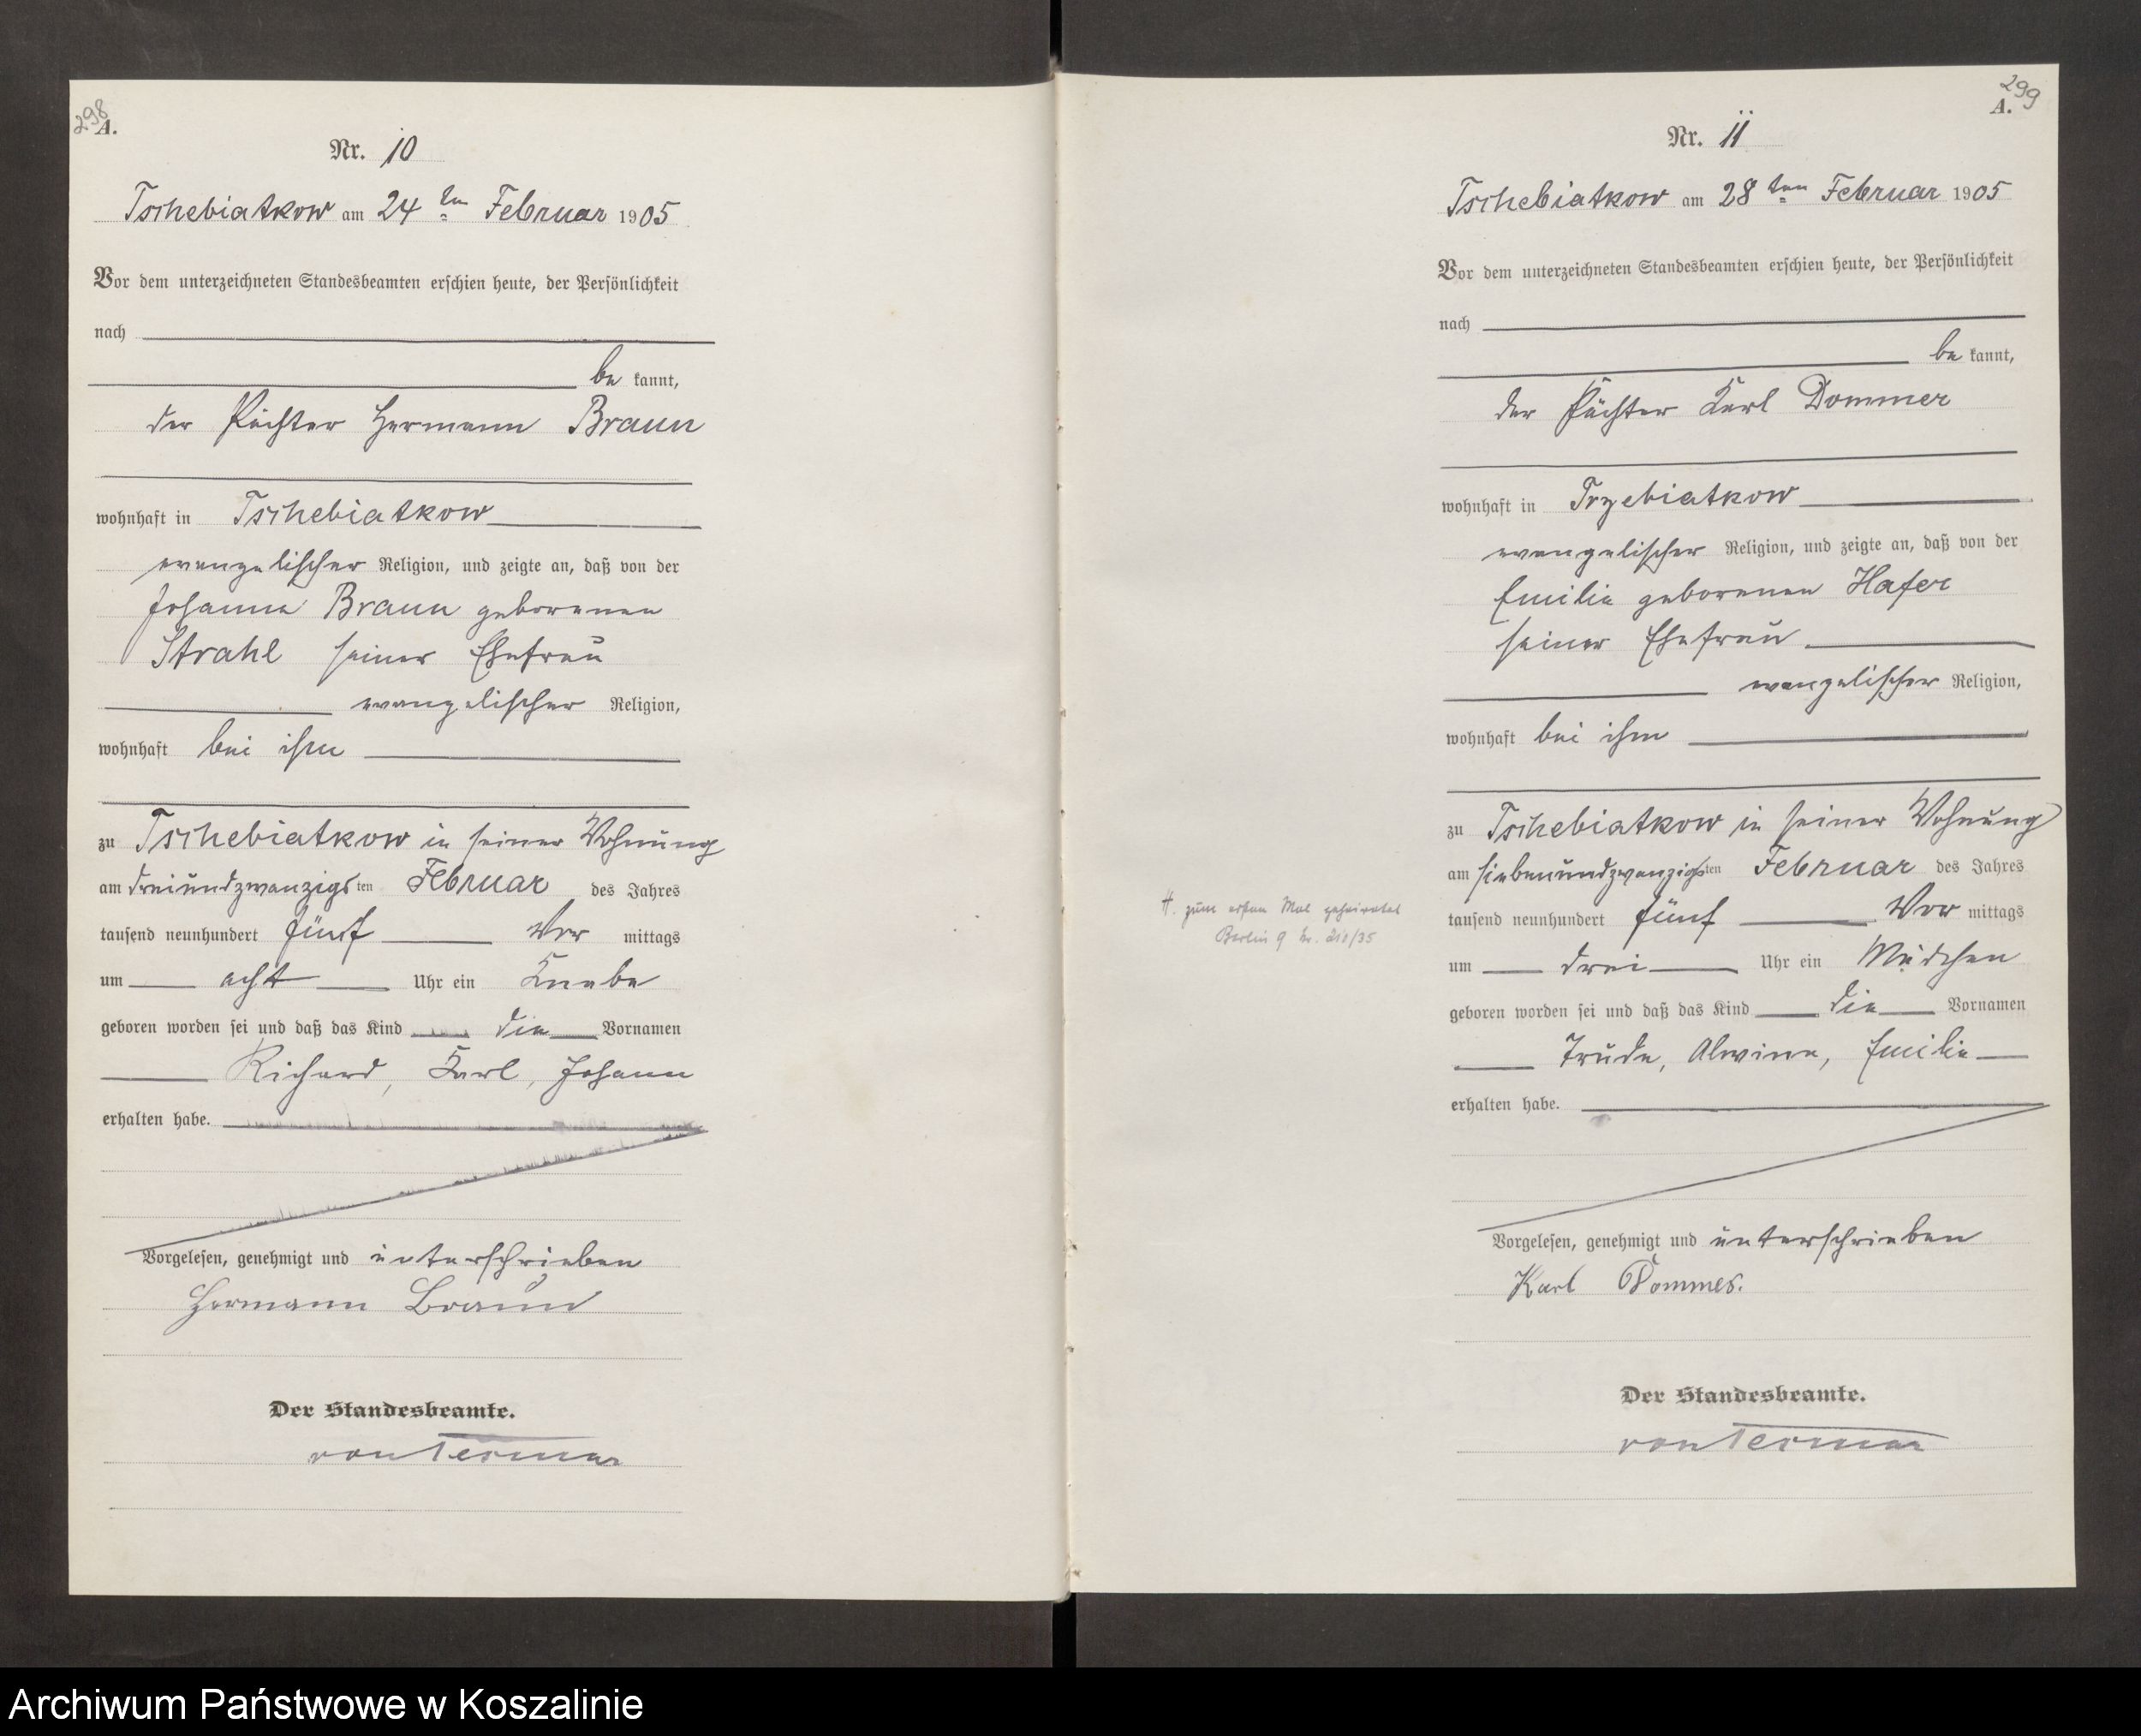 298
A.
Nr. 10
Tschebiatkow am 24 ten Februar 1905
Vor dem unterzeichneten Standesbeamten erschien heute, der Persönlichkeit
nach
be kannt,
der Pächter Hermann Braun
wohnhaft in Tschebiatkow
evangelischer Religion, und zeigte an, daß von der
Johanna Braun geborenen
Strahl seiner Ehefrau
evangelischer Religion,
wohnhaft bei ihm
zu Tschebiatkow in seiner Wohnung
am dreiundzwanzigsten Februar des Jahres
tausend neunhundert fünf Vor mittags
um acht Uhr ein Knabe
geboren worden sei und daß das Kind die Vornamen
Richard, Karl, Johann
erhalten habe.
Vorgelesen, genehmigt und unterschrieben
Hermann Braun
Der Standesbeamte.
von
299
A.
Nr. 11
Tschebiatkow am 28 ten Februar 1905
Vor dem unterzeichneten Standesbeamten erschien heute, der Persönlichkeit
nach
be kannt,
der Pächter Karl Dommer
wohnhaft in Trzebiatkow
evangelischer Religion, und zeigte an, daß von der
Emilie geborenen Hafer
seiner Ehefrau
evangelischer Religion,
wohnhaft bei ihm
zu Tschebiatkow in seiner Wohnung
am siebenundzwanzigsten Februar des Jahres
tausend neunhundert fünf Vor mittags
um drei Uhr ein Mädchen
geboren worden sei und daß das Kind die Vornamen
Trude, Alwine, Emilie
erhalten habe.
Vorgelesen, genehmigt und unterschrieben
Karl Dommer.
Der Standesbeamte.
von
H. zum ersten Mal geheiratet
Berlin 9 Nr. 210/35
Archiwum Państwowe w Koszalinie